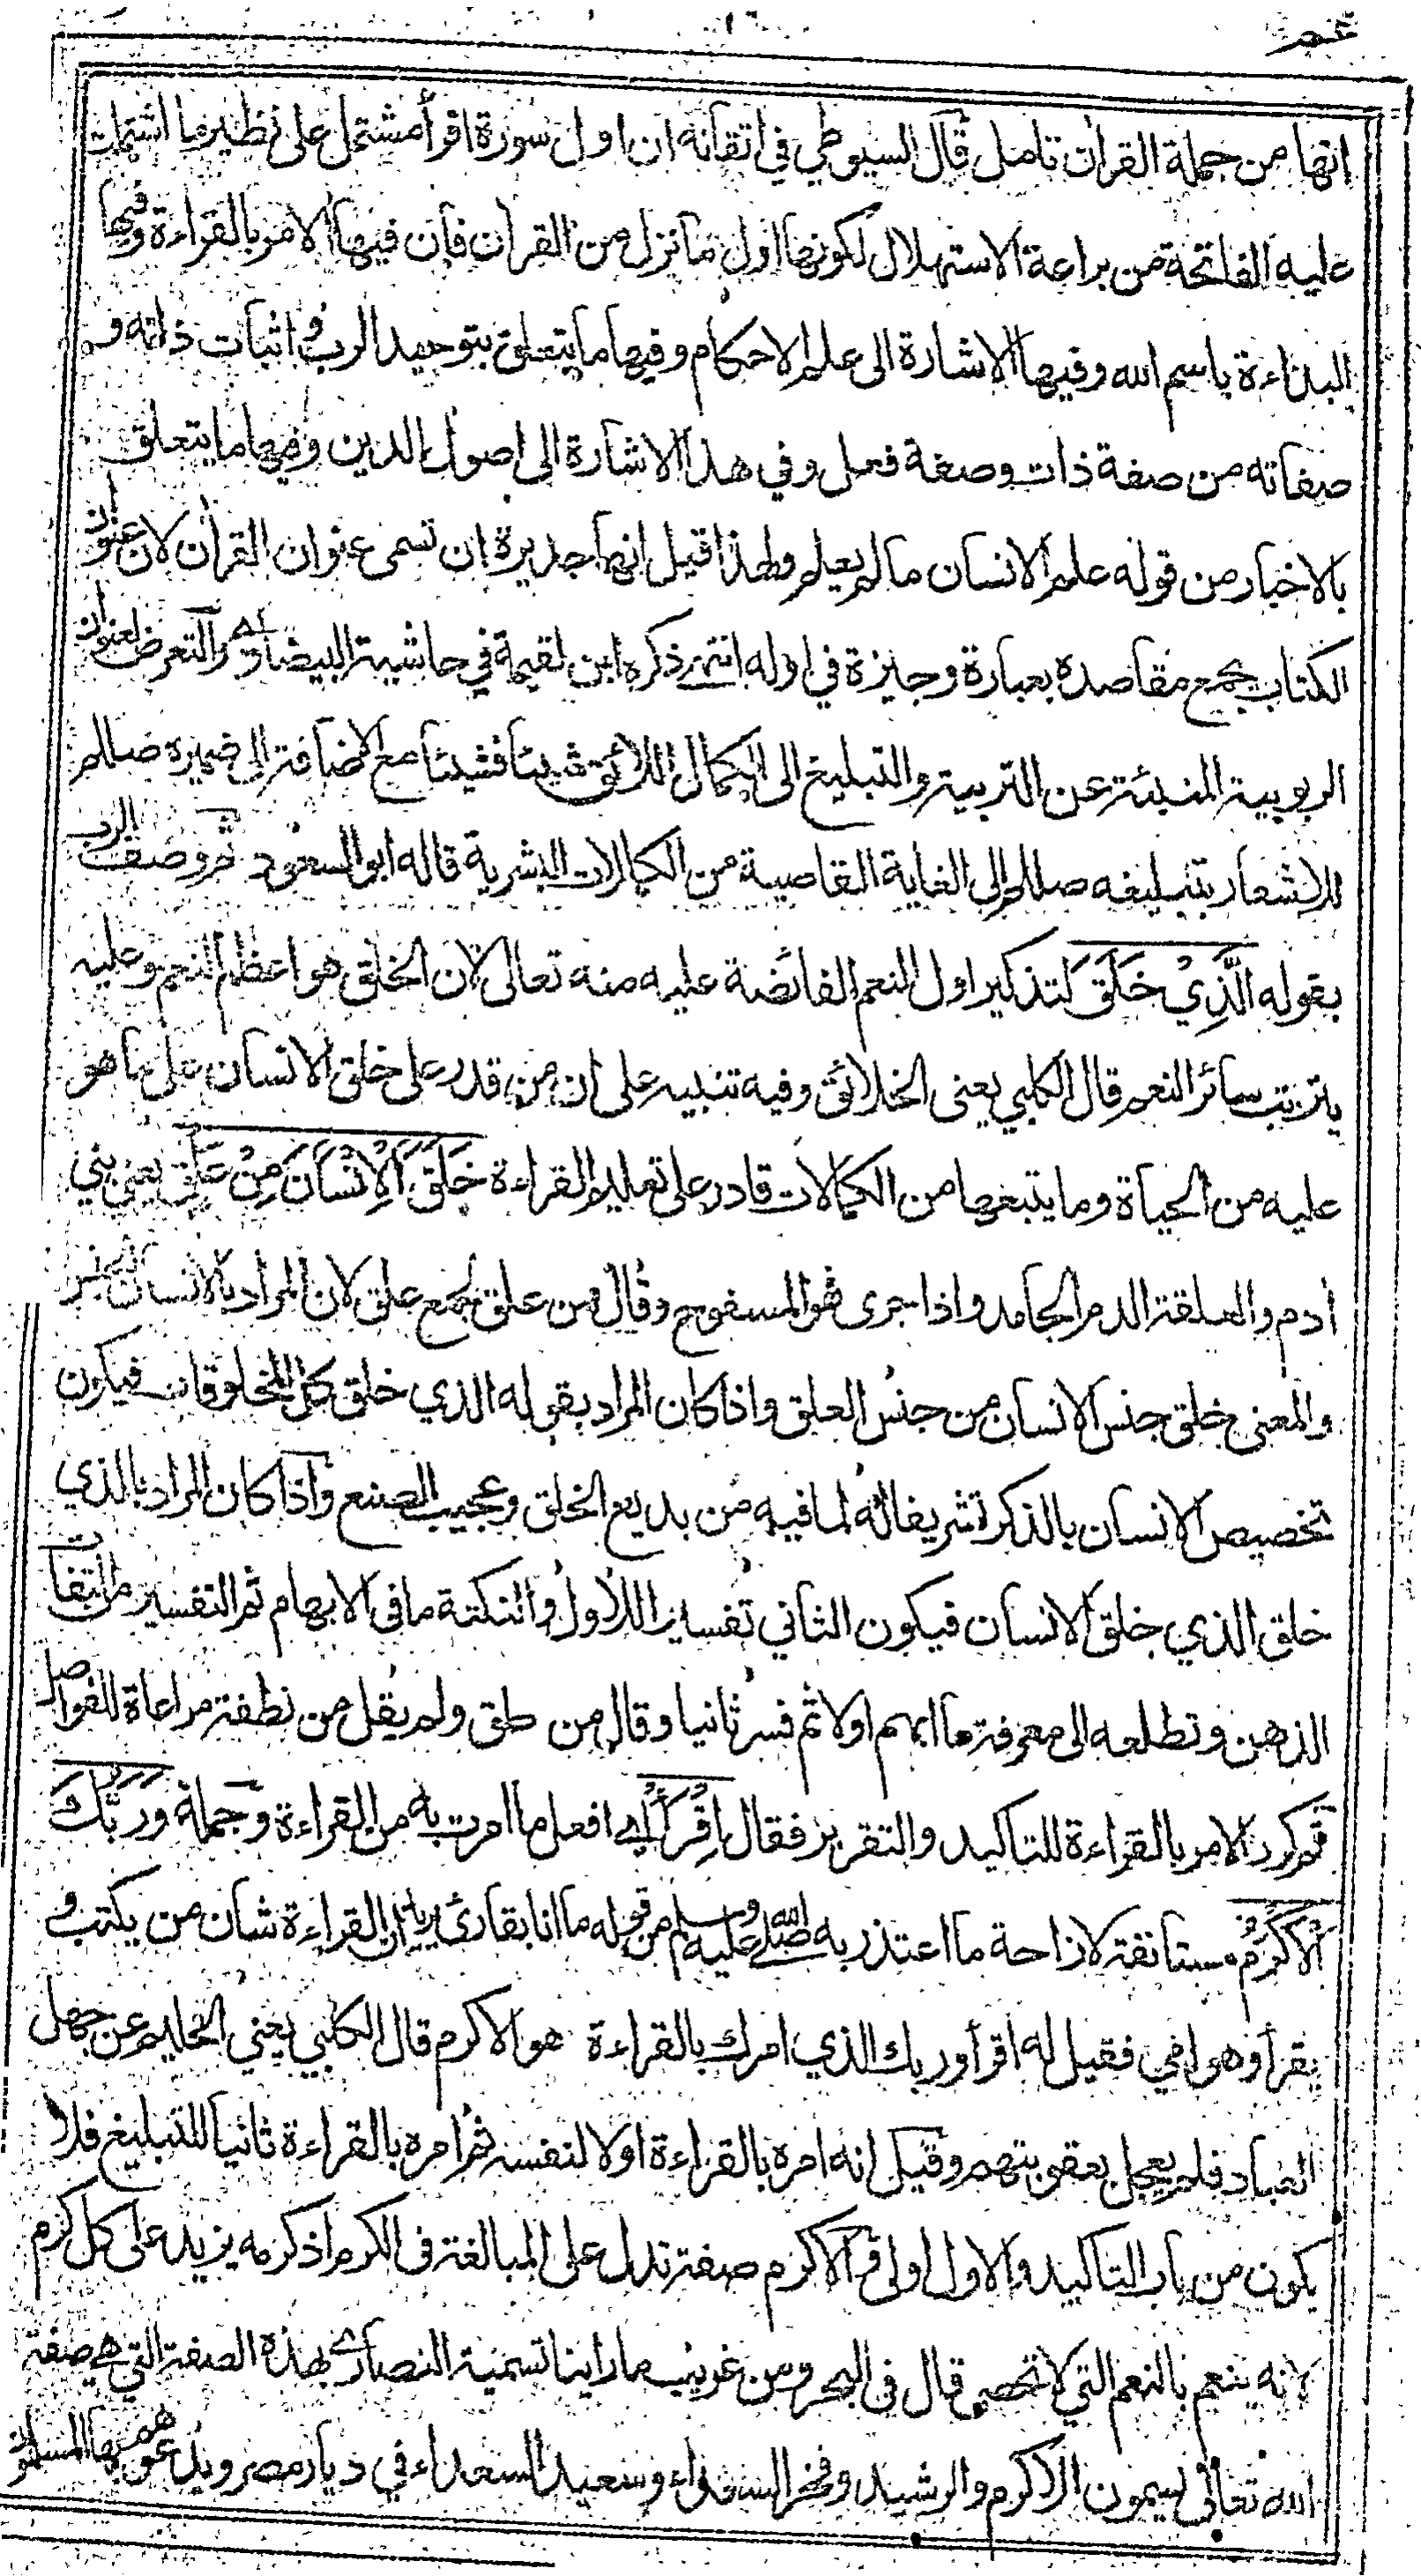 عم
انها من جملة القرأن تامل قال السيوطي في اتقانه ان اول سورة اقرأ مشتمل على نظير ما اشتملت
عليه الفاتحة من براعة الاستهلال لكونها اول ما نزل من القرأن فان فيها الامر بالقراءة وفيها
البداءة باسم الله وفيها الاشارة الى علم الاحكام وفيها ما يتعلق بتوحيد الرب واثبات ذاته و
صفاته من صفة ذات وصفة فعل وفي هذا الاشارة الى اصول الدين وفيها ما يتعلق
بالاخبار من قوله علم الانسان ما لم يعلم ولهذا قيل انها جديرة ان تسمى عنوان القرأن لان عنوان
الكتاب يجمع مقاصده بعبارة وجيزة في اوله انتهى ذكره ابن لقيمة في حاشية البيضاوي والتعرض لعنوان
الربوبية المنبئة عن التربية والتبليغ الى الكمال اللائق شيئا فشيئا مع الاضافة الى ضميره صللم
للاشعار بتبليغه صللم الى الغاية القاصية من الكمالات البشرية قاله ابو السعود ثم وصف الرب
بقوله الَّذِيْ خَلَقَ لتذكير اول النعم الفائضة عليه منه تعالى لان الخلق هو اعظم النعم وعليه
يترتب سائر النعم قال الكلبي يعنى الخلائق وفيه تنبيه على ان من قدر على خلق الانسان على ما هو
عليه من الحياة وما يتبعها من الكمالات قادر على تعليم القراءة خَلَقَ الْاِنْسَانَ مِنْ عَلَقٍ يعني بني
أدم والعلقة الدم الجامد واذا جرى فهو المسفوح وقال من علق بجمع علق لان المراد بالانسان الجنس
والمعنى خلق جنس الانسان من جنس العلق واذا كان المراد بقوله الذي خلق كل المخلوقات فيكون
تخصيص الانسان بالذكر تشريفا له لما فيه من بديع الخلق وعجيب الصنع واذا كان المراد بالذي
خلق الذي خلق الانسان فيكون الثاني تفسيرا للاول والنكتة ما في الابهام ثم التفسير من التفات
الذهن وتطلعه الى معرفة ما ابهم اولا ثم فسر ثانيا وقال من علق ولم يقل من نطفة مراعاة للفواصل
ثم كرر الامر بالقراءة للتاكيد والتقرير فقال اِقْرَأْ اي افعل ما امرت به من القراءة وجملة وَرَبُّكَ
الْاَكْرَمُ مستانفة لازاحة ما اعتذر به صلى الله عليه وسلم من قوله ما انا بقارئ يريد ان القراءة شان من يكتب و
يقرأ وهو امي فقيل له اقرأ وربك الذي امرك بالقراءة هو الاكرم قال الكلبي يعني الحليم عن جهل
العباد فلم يعجل بعقوبتهم وقيل انه امره بالقراءة اولا لنفسه ثم امره بالقراءة ثانيا للتبليغ فلا
يكون من باب التاكيد والاول اولى والاكرم صفة تدل على المبالغة في الكرم اذ كرمه يزيد على كل كرم
لانه ينعم بالنعم التي لا تحصى قال في البحر ومن غريب ما راينا تسمية النصارى بهذه الصفة التي هي صفة
الله تعالى يسمون الاكرم والرشيد وفخر السعداء وسعيد السعداء في ديار مصر ويدعوهم بها المسلمون